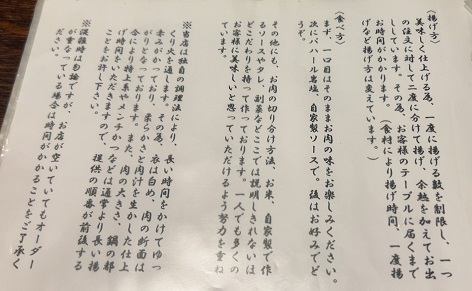 (揚げ方)
美味しく仕上げる為、一度に揚げる数を制限し、一つ
の注文に対して二度に分けて揚げ、余熱を加えてお出
ししています。その為、お客様のテーブルに届くまで
お時間がかかります。(食材により揚げ時間、一度揚
げなど揚げ方は変えています。)
(食べ方)
まず、一口目はそのままお肉の味をお楽しみください。
次にパハール岩塩、自家製ソースで。後はお好みでど
うぞ。
その他にも、お肉の切り分け方法、お米、自家製で作
るソースやタレ、副菜などここでは説明しきれないほ
どこだわりを持って作っております。一人でも多くの
お客様に美味しいと思っていただけるよう努力を重ね
※当店は独自の調理法により、長い時間をかけてゆっ
くり火を通します。その為、衣は白め、肉の断面は
赤みがかっており、柔らかさと肉汁を生かした仕上
がりとなっております。また、肉の大きさ、鍋の都
合により特上系やメンチかつなどは通常より長い揚
げ時間をいただきますので、提供の順番が前後する
ことをお許し下さい。
※混雑時は勿論ですが、お店が空いていてもオーダー
が重なっている場合は時間がかかることをご了承く
ださい。